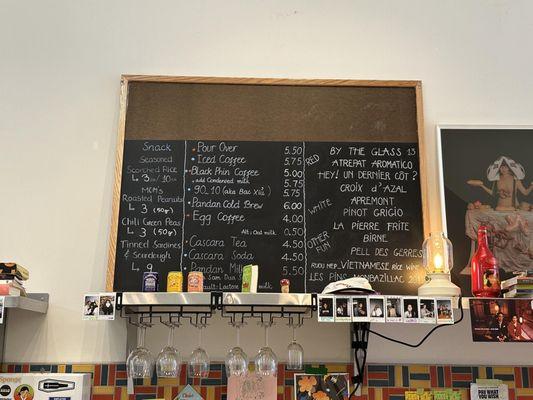 Snack
Seasoned
Scorched Rice
£ 3 sm/10 sm
MCM's
Roasted Peanuts
£ 3 (50gr)
Chili Green Peas
£ 3 (50gr)
Tinned Sardines
& Sourdough
£ 9
Pour Over 5.50
Iced Coffee 5.75
Black Phin Coffee 5.25
+ add Condensed milk 0.50
90_10 (aka Bạc Xỉu) 5.75
Pandan Cold Brew 6.00
Egg Coffee 4.00
Alt: Oat milk 0.50
Cascara Tea 4.50
Cascara Soda 4.50
Pandan Milk 5.50
Default: Lactose
BY THE GLASS 13
RED
ATREFAT AROMATICO
HEY! UN DERNIER CÔT?
CROIX D'AZAL
WHITE
APREMONT
PINOT GRIGIO
LA PIERRE FRITE
BIRNE
OTHER FUN
PELL DES GERRES
VIETNAMESE RICE WINE
LES PINS MONBAZILLAC 2011
Sponge